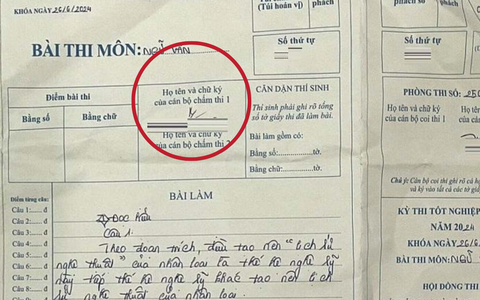 KHÓA NGÀY 26/6/2024
BÀI THI MÔN: NGỮ VĂN
(Túi hoán vị)
phách
Số thứ tự
Điểm bài thi
Bằng số
Bằng chữ
Họ tên và chữ ký
của cán bộ chấm thi 1
Họ tên và chữ ký
của cán bộ chấm thi 2
CĂN DẶN THÍ SINH
Thí sinh phải ghi rõ tổng
số tờ giấy thi đã làm bài.
Bài làm gồm có:
Bằng số: tờ.
Bằng chữ: tờ.
BÀI LÀM
Điểm từng câu:
Câu 1: đ
Câu 2: đ
Câu 3: đ
Câu 4: đ
Câu 5: đ
Câu 6: đ
Câu 7: đ
Đọc hiểu
Câu 1.
Theo đoạn trích, điều tạo nên "lịch sử
nghệ thuật" của nhân loại là thế hệ nghệ sỹ
này tiếp thế hệ nghệ sỹ khác tạo nên lịch
sử nghệ thuật của nhân loại.
phách số
phách
Số thứ tự
PHÒNG THI SỐ:
Họ tên và chữ ký
của cán bộ coi thi 1
Chú ý: Cán bộ coi thi ghi rõ cả họ
và ký vào tất cả các tờ giấ
KỲ THI TỐT NGHIỆP
NĂM 2024
KHÓA NGÀY 26/6
MÔN: NGỮ
HỘI ĐỒNG THI